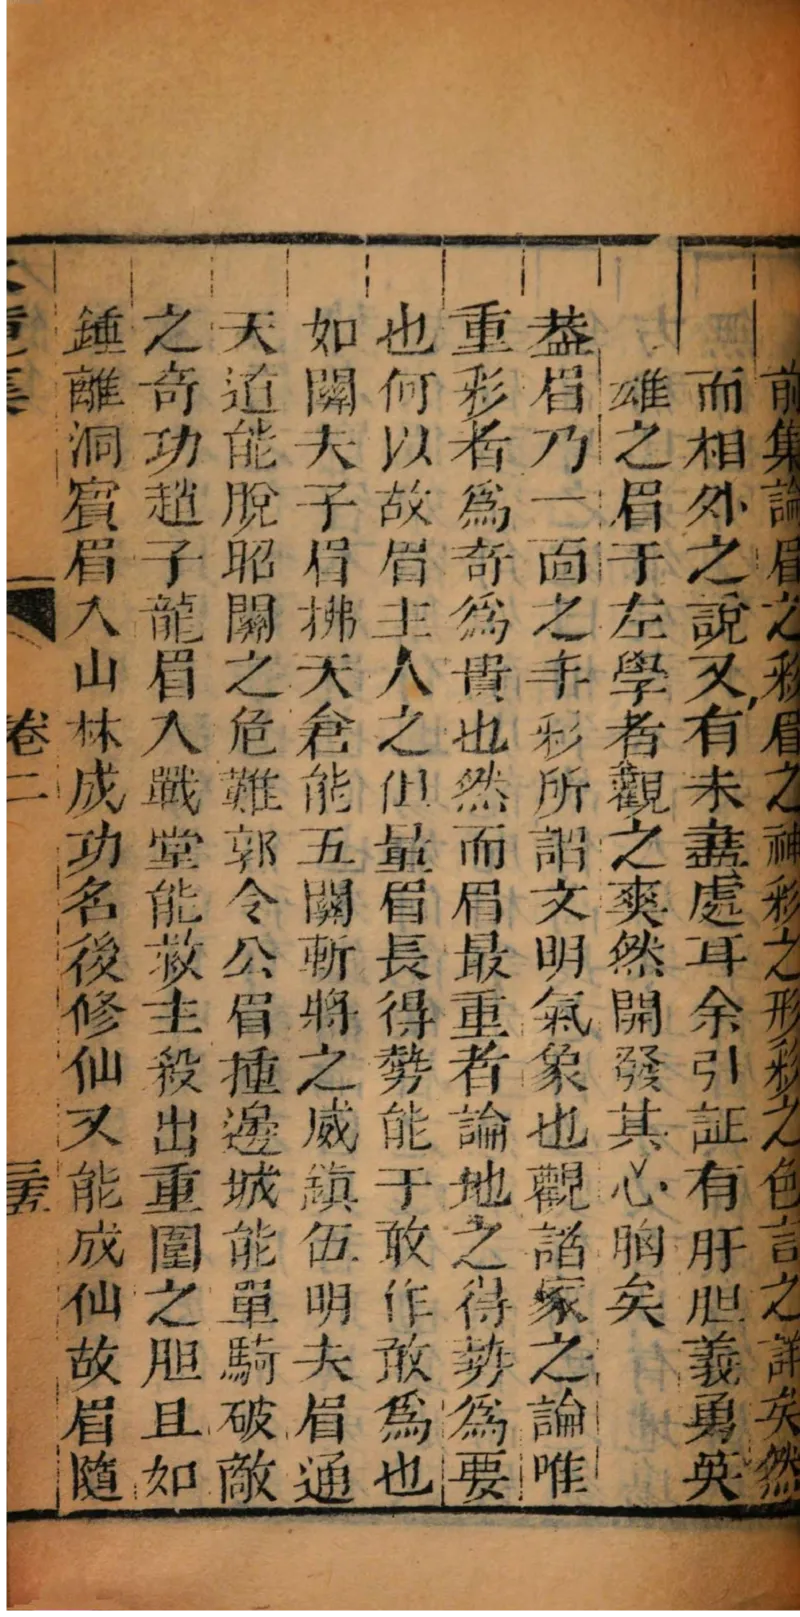 前集論眉之彩眉之神彩之形彩之色言之詳矣然
而相外之說又有未盡處耳余引証有肝胆義勇英
雄之眉于左學者觀之爽然開發其心胸矣
葢眉乃一面之手彩所詔文明氣象也觀諸家之論唯
重彩者爲奇爲貴也然而眉最重者論地之得势爲要
也何以故眉主人之但量眉長得勢能于敢作敢爲也
如關夫子眉拂天倉能五關斬將之威鎮伍明夫眉通
天道能脫昭關之危難郭令公眉揷邊城能單騎破敵
之奇功趙子龍眉入戰堂能救主殺出重圍之胆且如
鍾離洞賓眉入山林成功名後修仙又能成仙故眉隨
卷二
三五